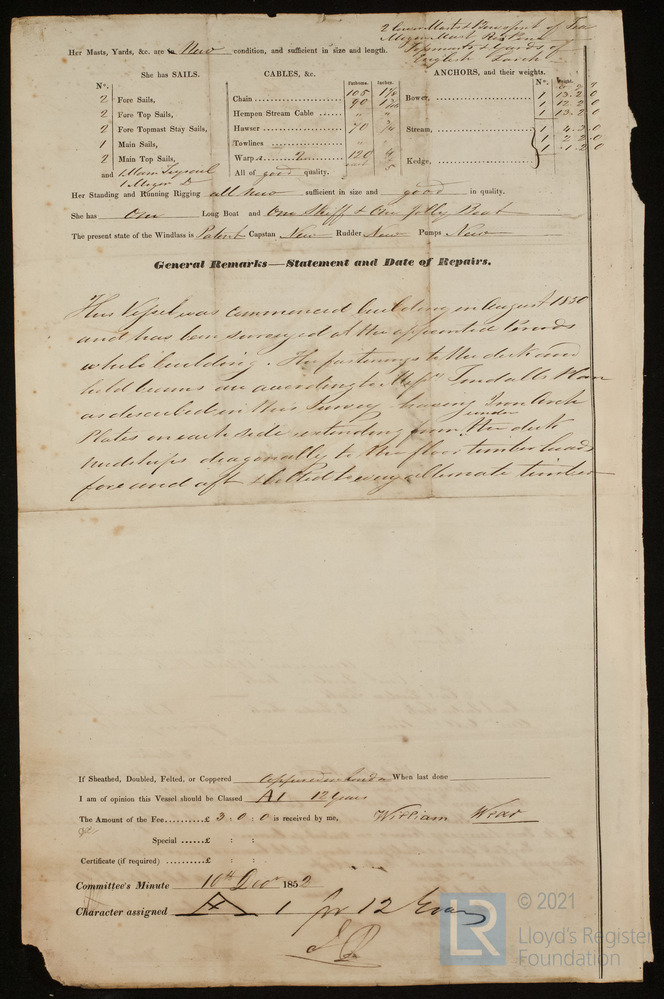 2 Lower Masts & Bowsprit of
Mizen Mast Red Pine
Topmasts & Yards of
English Larch
Her Masts, Yards, &c. are in New condition, and sufficient in size and length.
She has SAILS. CABLES, &c. Fathoms. Inches. ANCHORS, and their weights.
N°. N°.
2 Fore Sails, Chain 105 Bower, 1 13.2.0
2 Fore Top Sails, Hempen Stream Cable " " 90 1 12.2.0
2 Fore Topmast Stay Sails, Hawser 70 1 13.2.0
1 Main Sails, Towlines Stream, 1 4.3.0
2 Main Top Sails, Warps 2 120 4 1 2.2.0
and 1 Main Trysail All of good quality. Kedge, 1 1.2.0
1 Mizen Do
Her Standing and Running Rigging all new sufficient in size and good in quality.
She has One Long Boat and One Skiff & One Jolly Boat
The present state of the Windlass is Patent Capstan New Rudder New Pumps New
General Remarks—Statement and Date of Repairs.
This Vessel was commenced building in August 1850
and has been surveyed at the appointed Periods
while building. The fastenings to the deck and
hold beams are according to Messrs Tindalls Plan
as described in this Survey having Iron Arch
under
Plates on each side extending from the deck
midships diagonally to the floor timber heads
fore and aft & bolted to every alternate timber
If Sheathed, Doubled, Felted, or Coppered Coppered in London When last done
I am of opinion this Vessel should be Classed A1 12 Years
The Amount of the Fee..........£ 3 : 0 : 0 is received by me, William
Special ......£ : :
Certificate (if required) ..........£ : :
Committee's Minute 10th Decr 1852
Character assigned A 1 for 12 Years
© 2021
LR
Lloyd's Register
Foundation